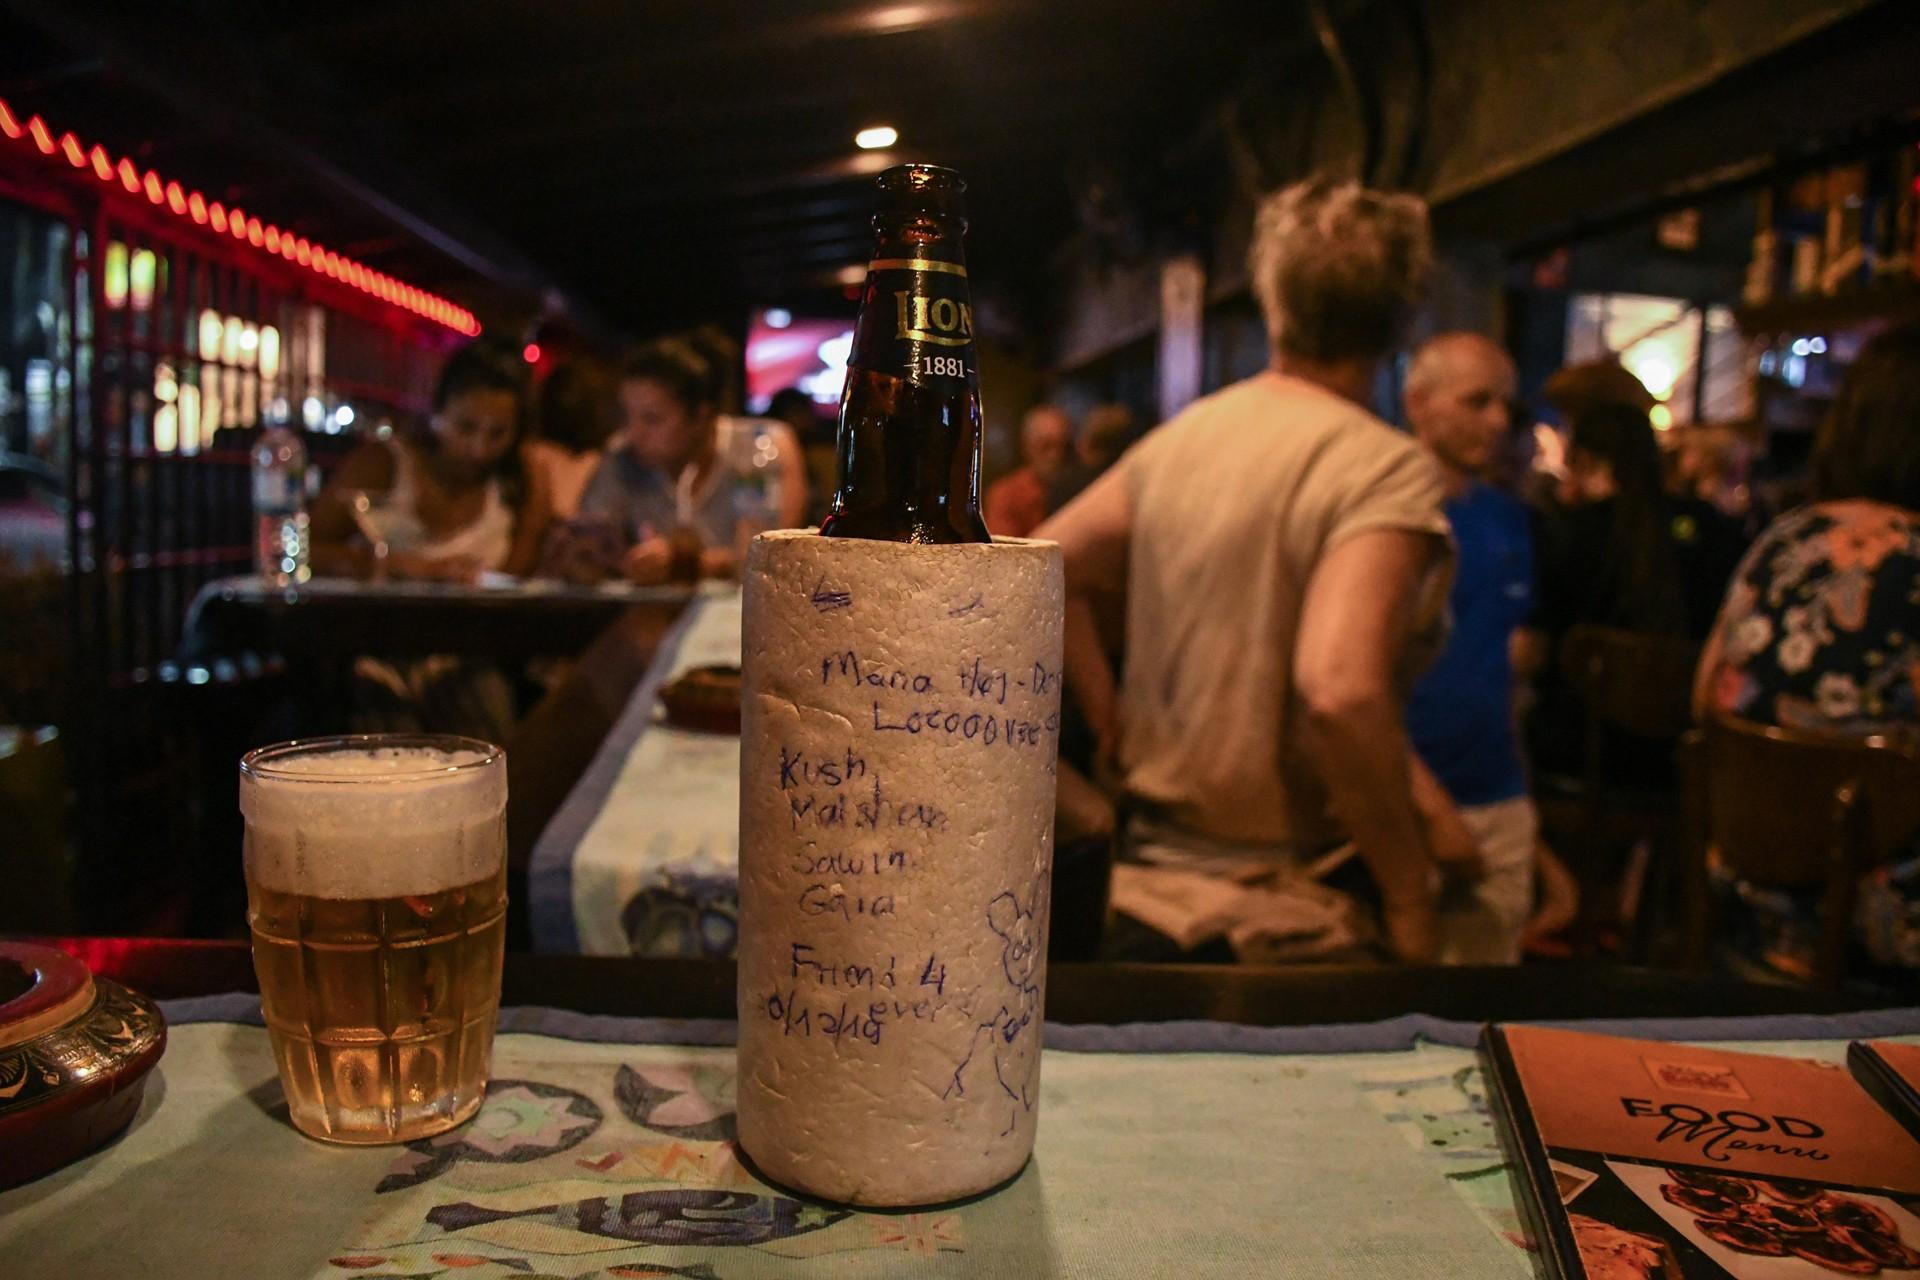 LION
1881
Mana Hog-De
Locooo
Kush,
Malshan
Sawin
Gaia
Friend 4
ever
0/12/19
FOOD
Menu